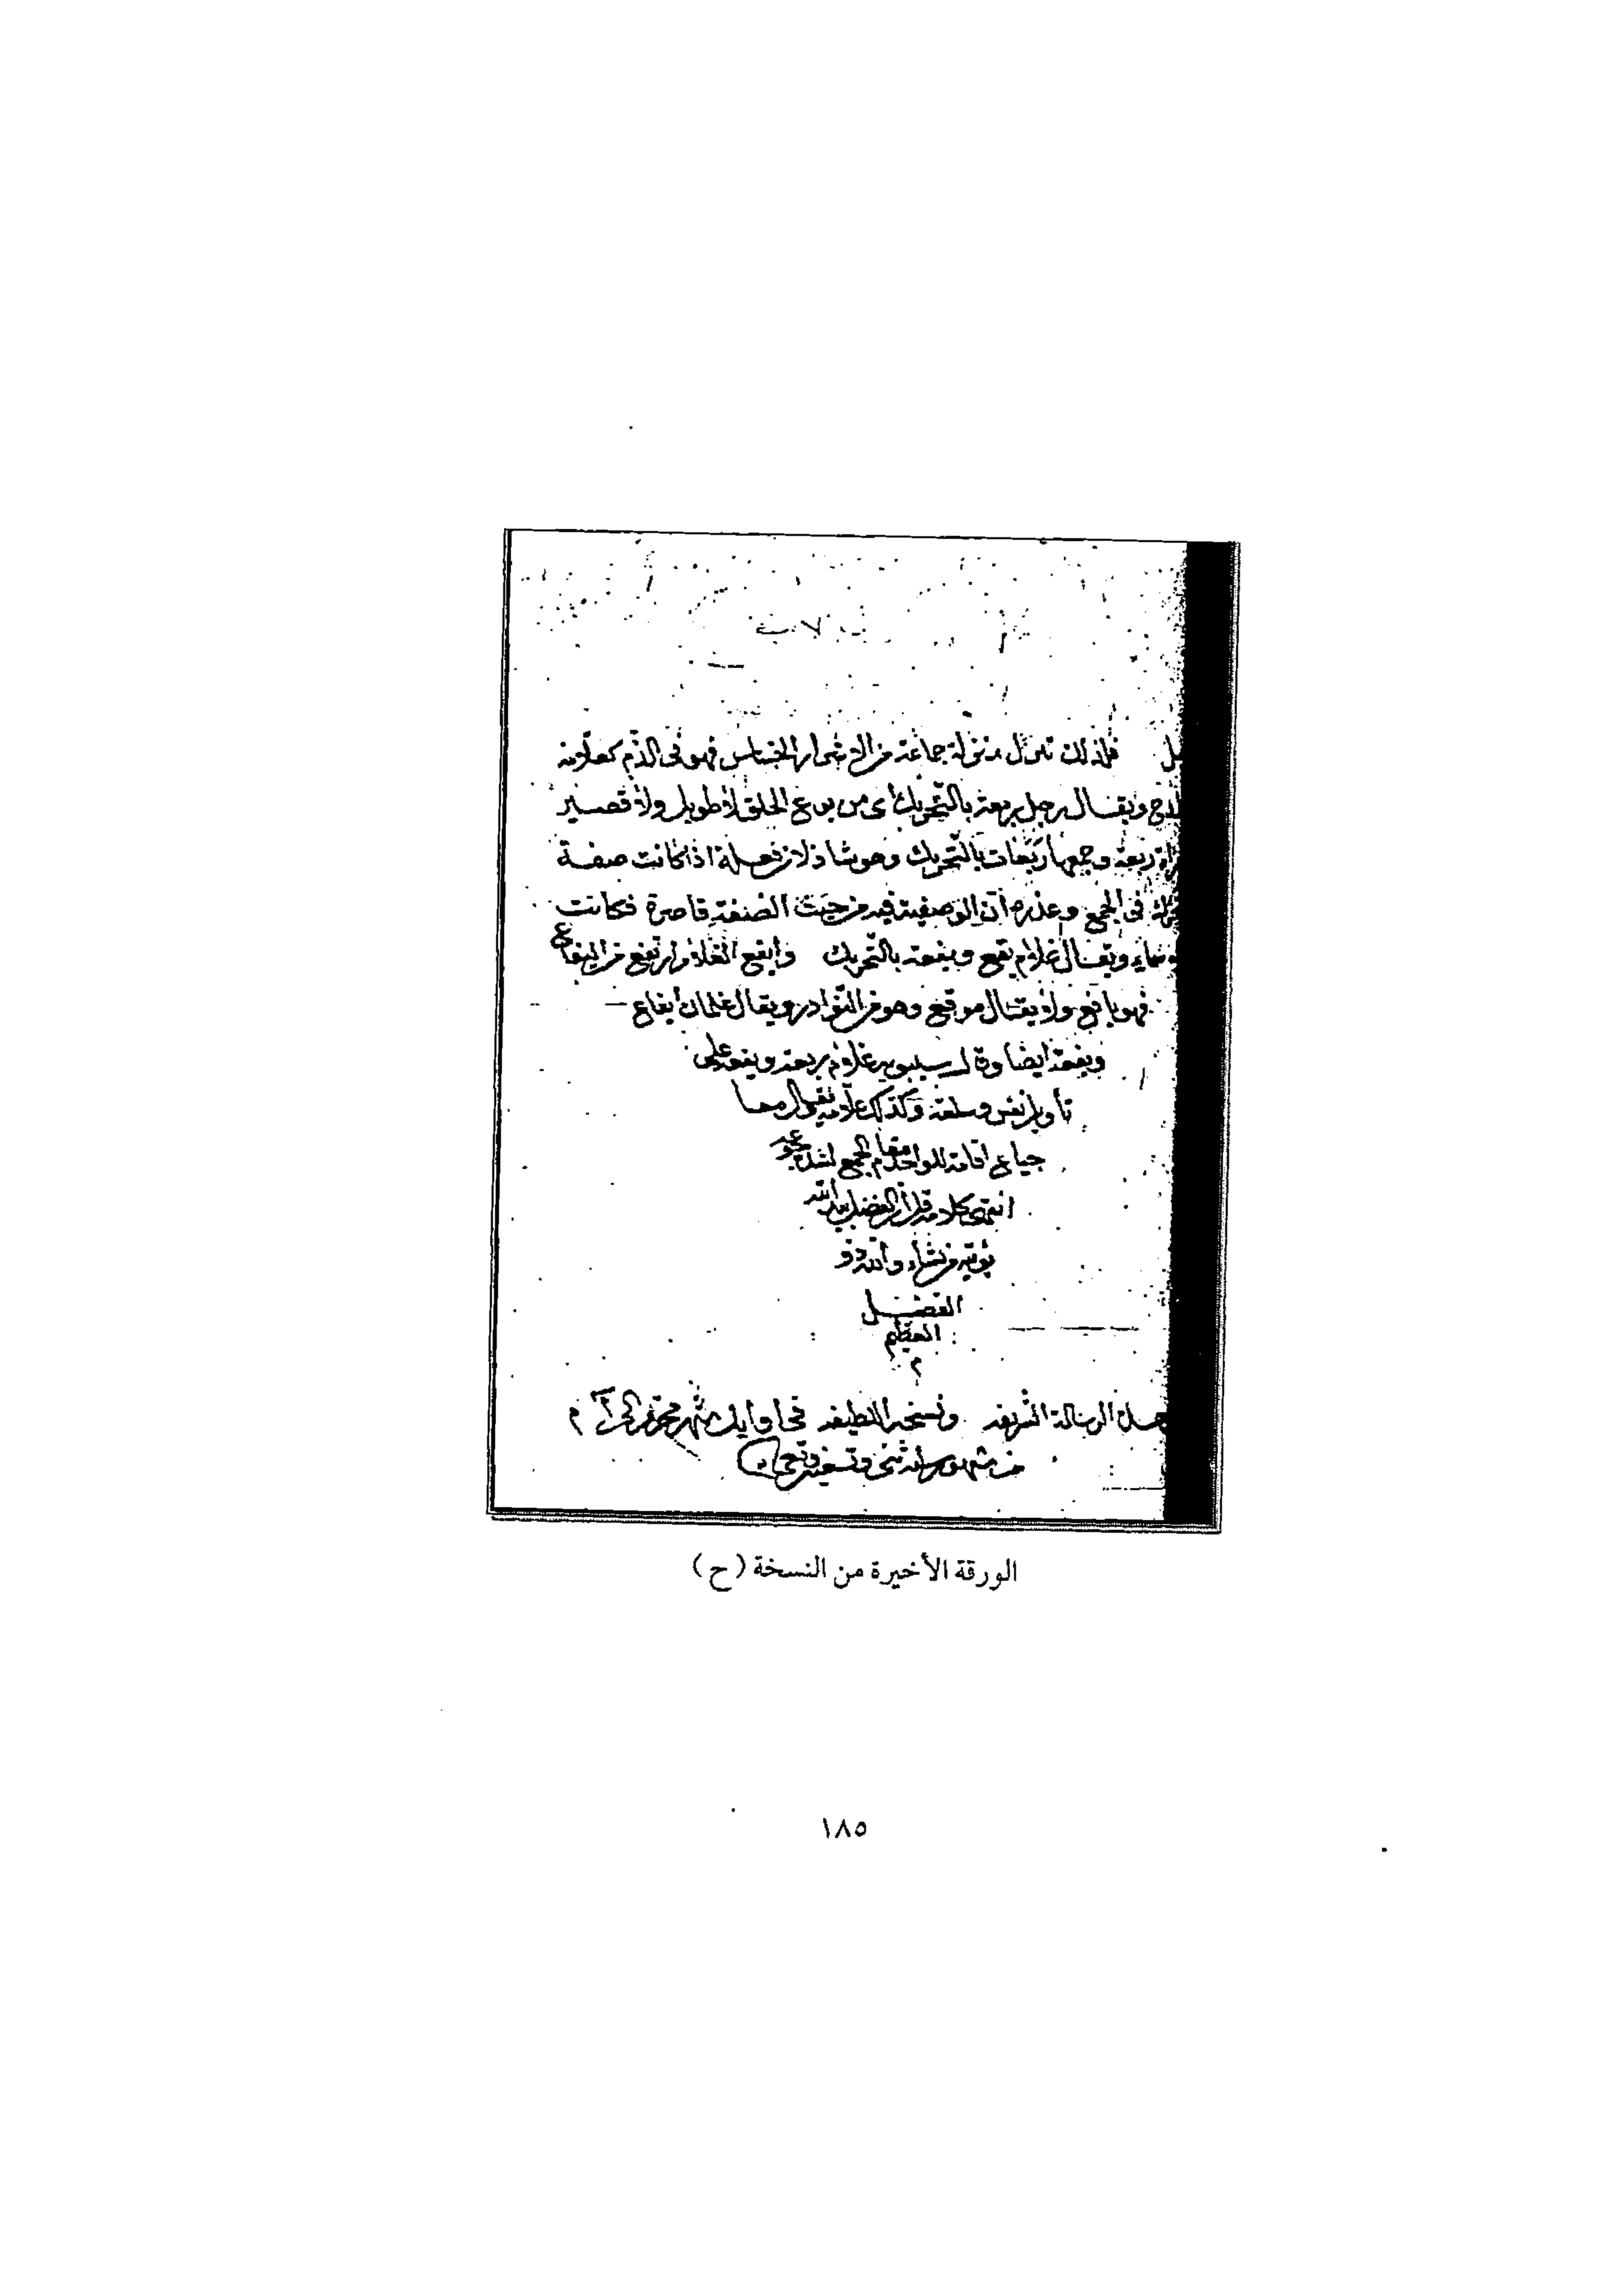 فلذلك تنزل منزلة جماعة من الاشرار الخساس فهو فى الذم كعلامة
ويقال رجل ربعة بالتحريك أى مربوع الخلق لا طويل ولا قصير
ربعة وجمعها رَبَعَات بالتحريك وهو شاذ لان فعلة اذا كانت صفة
فى الجمع وعذره أن الوصفية فيه من حيث الصنفة قاصرة فكانت
ويقال غلام يفع ويفعة بالتحريك وأيفع الغلام ارتفع من اليفاع
فهو يافع ولا يقال موفع وهو من النوادر ويقال غلمان أيفاع
ويفعة ايضا وقال سيبويه غلام ربعة ويفعة على
تأويل نفس وسلعة وكذلك علامة
جياع اقامة للواحد مقام الجمع لشدة
انتهى كلامه قل ان الفضل بيد الله
يؤتيه من يشاء والله ذو
الفضل
العظيم
م
الرسالة الشريفة ونسخه اللطيفه فى اوايل شهر محرم الحرام
من شهور سنة
الورقة الأخيرة من النسخة (ح)
١٨٥